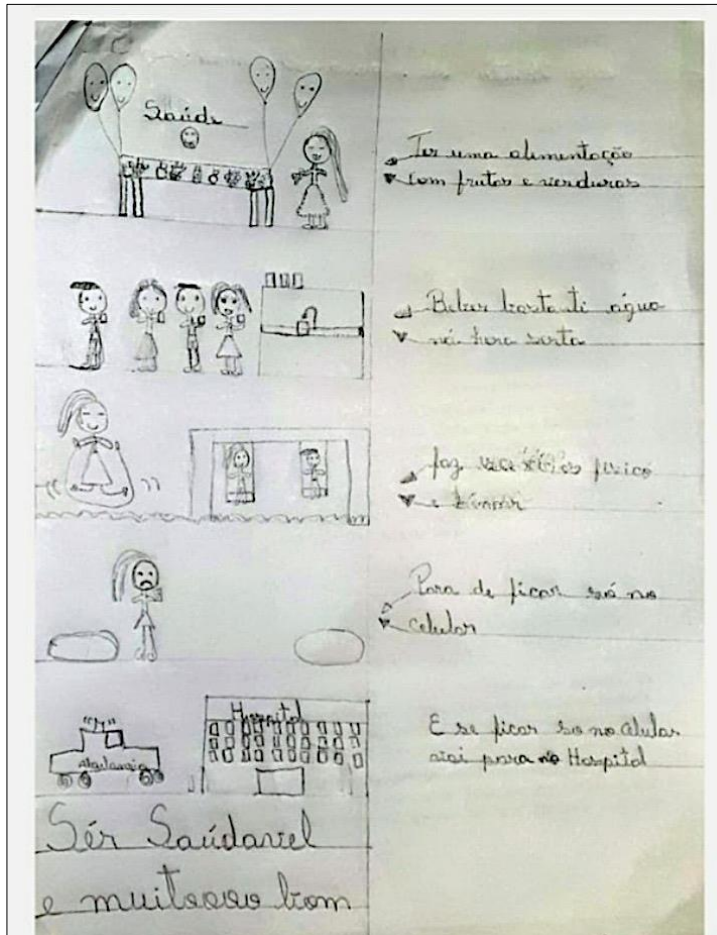 Saúde
Ter uma alimentação
com frutas e verduras
Beber bastanti água
ná hora serta
faz exercísios fisico
e
Para de ficar só no
celular
Hospital
E se ficar so no celular
vai para no Hospital
Sér Saúdavel
e muitoooo bom